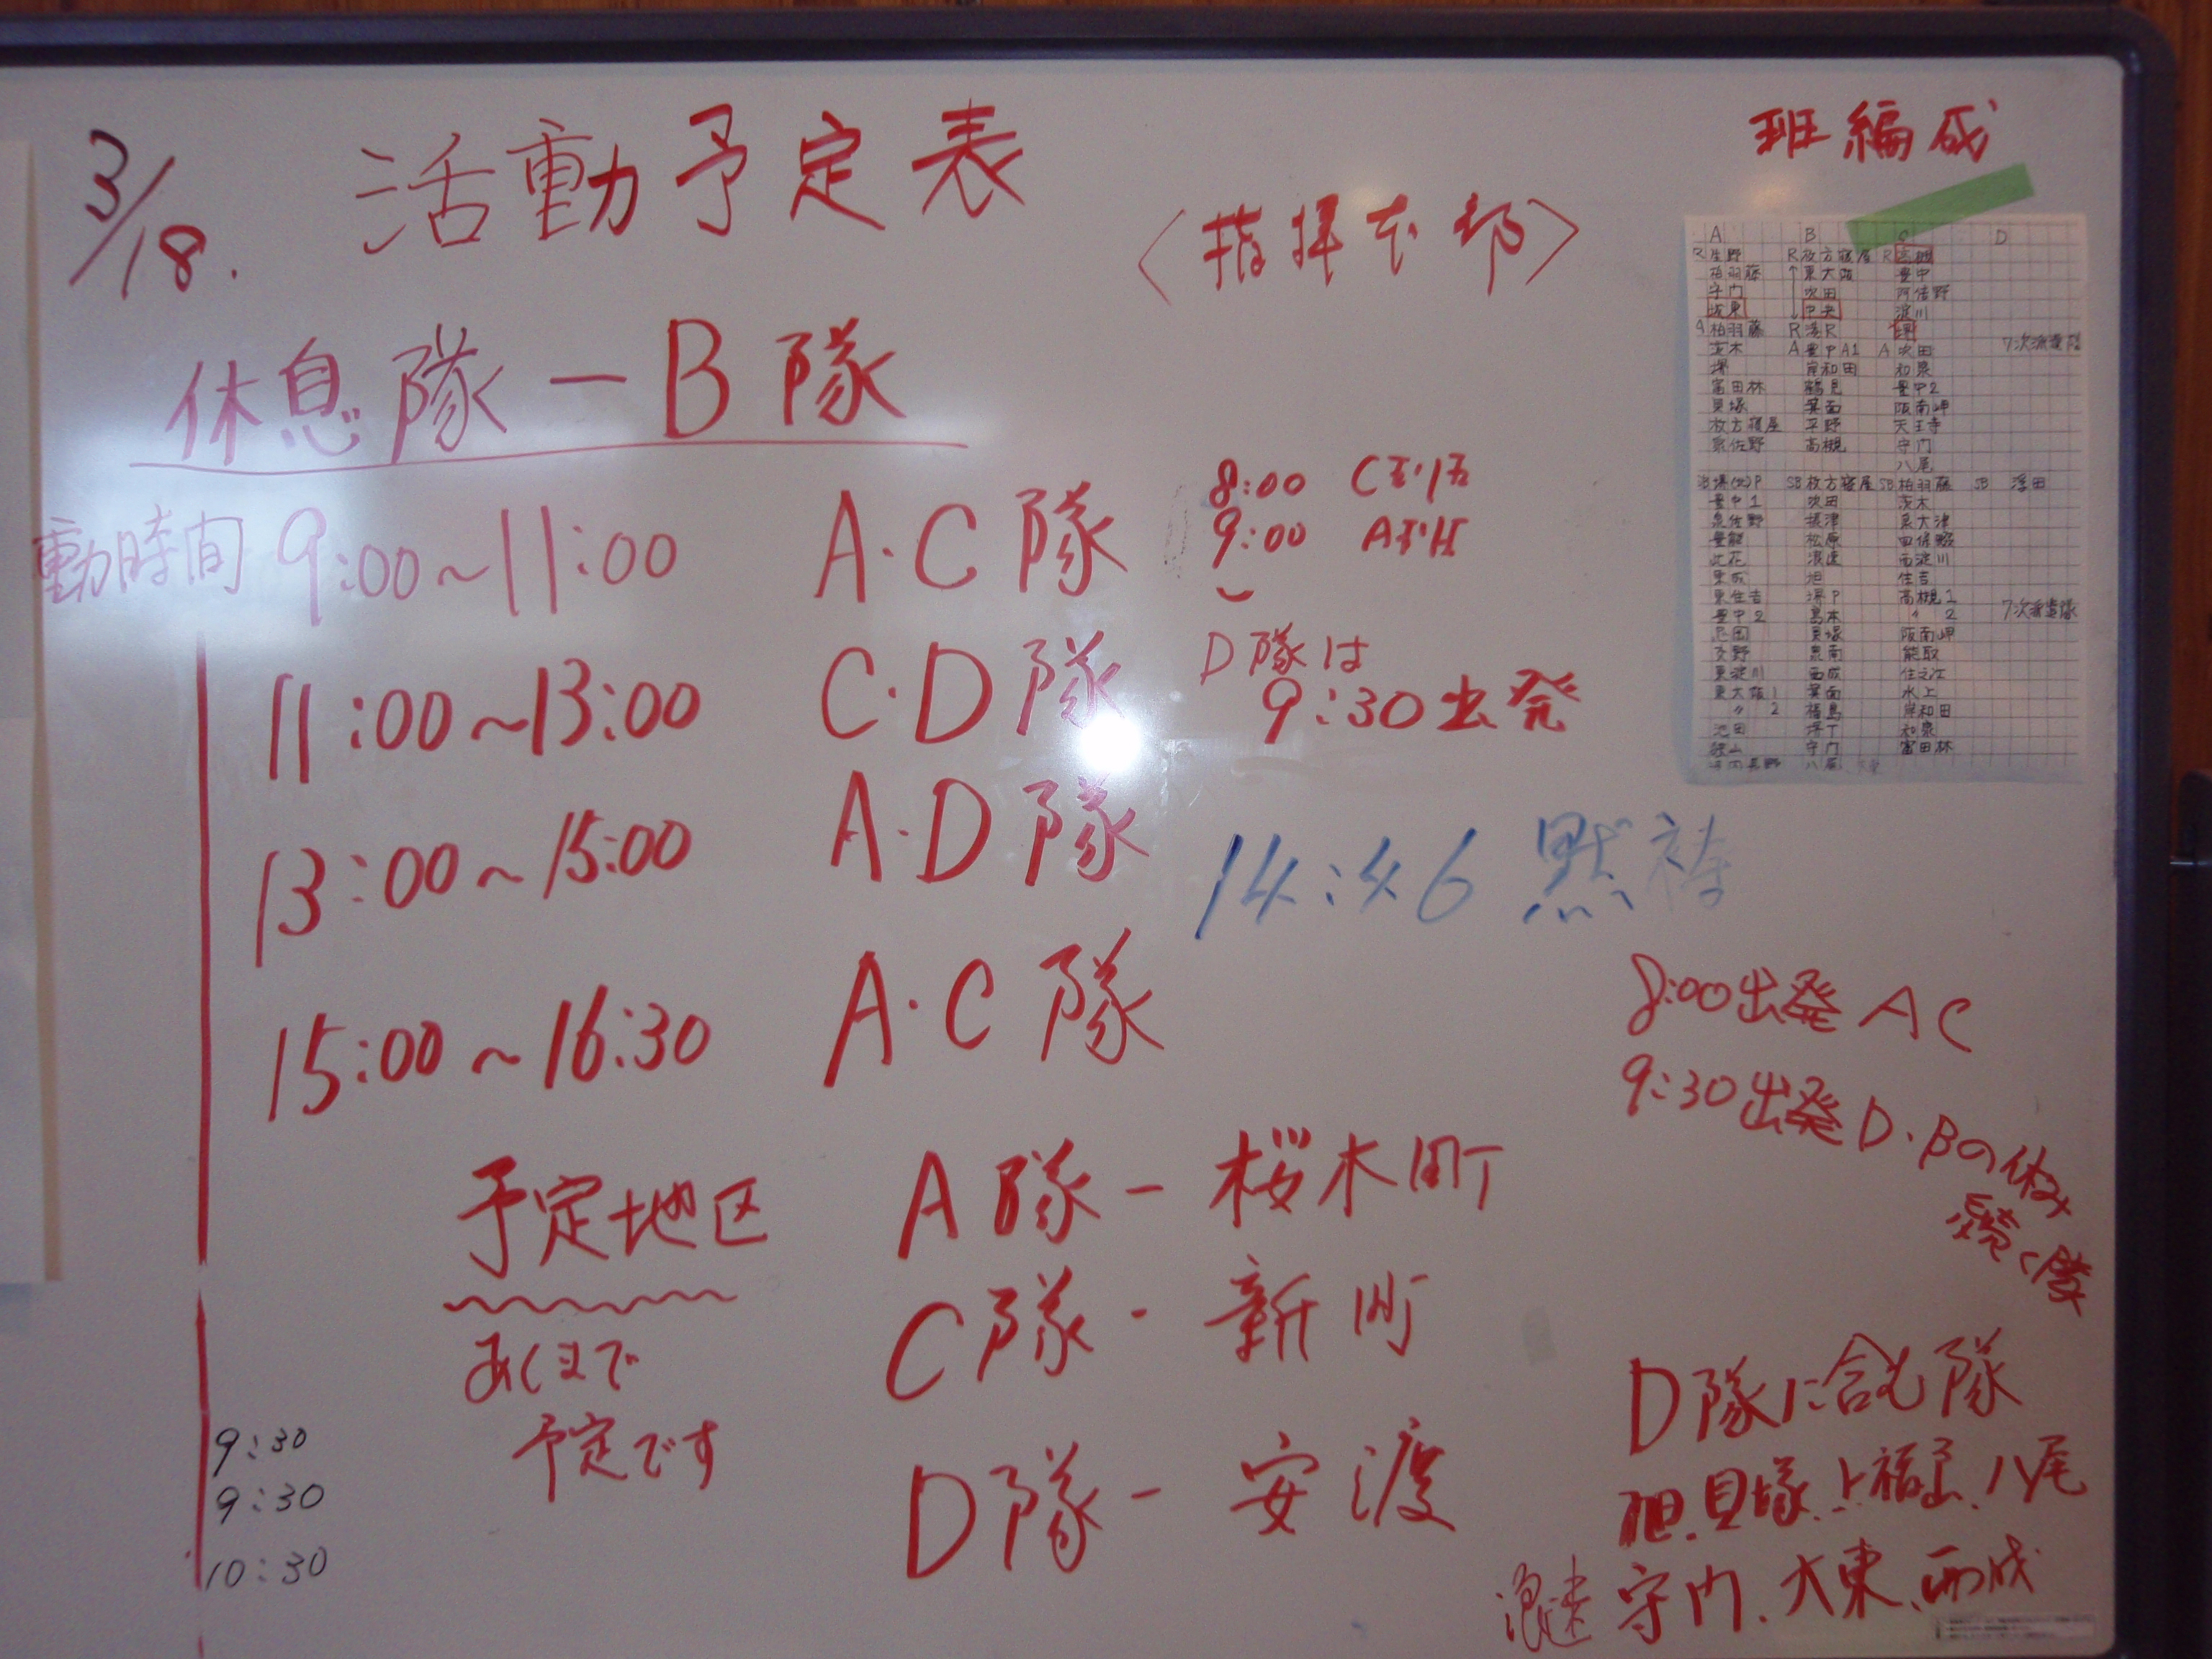 3/18.
活動予定表
〈指揮本部〉
班編成
休息隊ーB隊
動時間 9:00~11:00 A・C隊
8:00
9:00
11:00~13:00 C・D隊
D隊は
9:30出発
13:00~15:00 A・D隊
14:46 黙祷
15:00~16:30 A・C隊
8:00出発 A C
9:30出発 D・Bの休み
続く隊
予定地区
あくまで
予定です
A隊ー桜木町
C隊ー新町
D隊ー安渡
9:30
9:30
10:30
D隊に含む隊
旭、貝塚、福島、八尾
浪速 守門、大東、西成
A B C D
R生野 R枚方寝屋 R高槻
柏羽藤 東大阪 豊中
守門 吹田 阿倍野
城東 中央 淀川
A 柏羽藤 R 湊R 堺
茨木 A 豊中A1 A 吹田 7次派遣隊
堺 岸和田 和泉
富田林 鶴見 豊中2
貝塚 箕面 阪南岬
枚方寝屋 平野 天王寺
泉佐野 高槻 守門
八尾
SB枚方寝屋 SB柏羽藤 SB
豊中1 吹田 茨木
泉佐野 摂津 泉大津
豊能 松原
此花 浪速 西淀川
東成 旭 住吉
東住吉 堺P 高槻1
豊中2 島本 〃 2 7次派遣隊
忠岡 貝塚 阪南岬
交野 泉南 熊取
東淀川 西成 住之江
東大阪1 箕面 水上
〃 2 福島 岸和田
池田 和泉
狭山 守門 富田林
河内長野 八尾